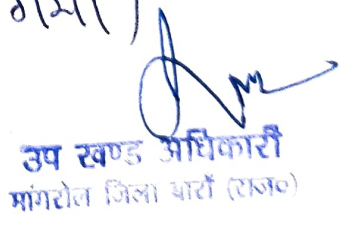 गया।
उप खण्ड अधिकारी
मांगरोल जिला बारां (राज०)